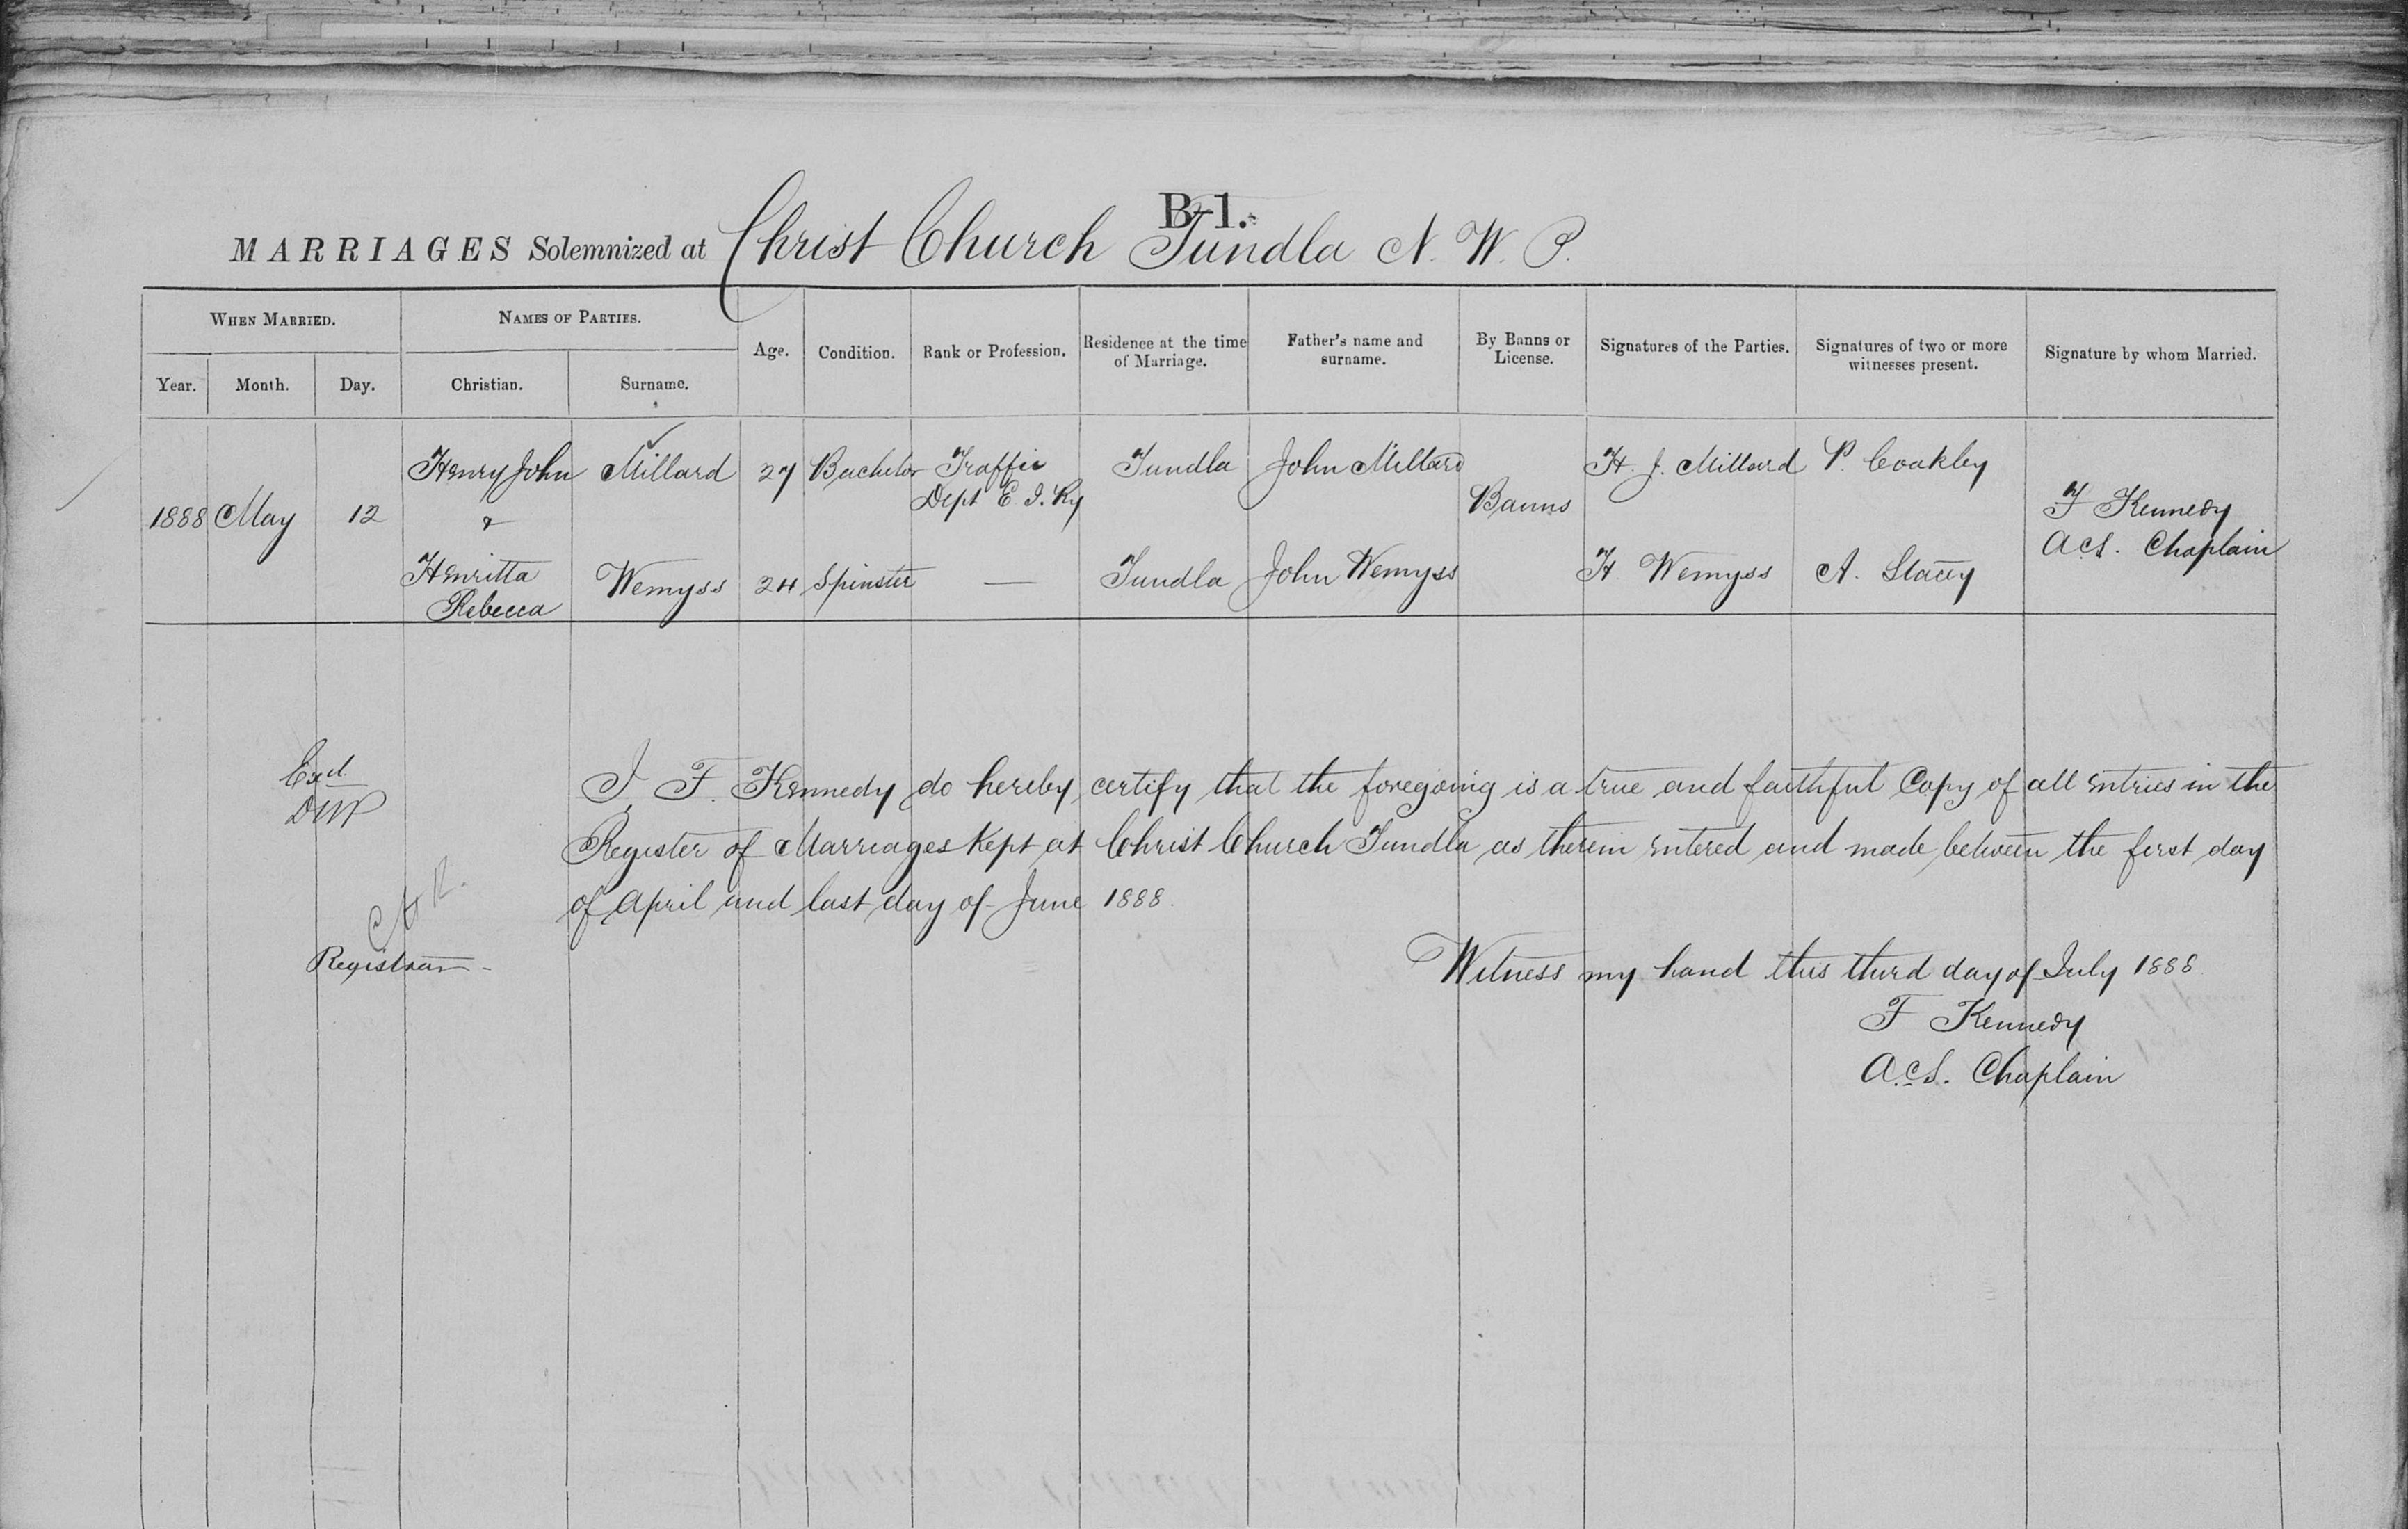 B-1.
MARRIAGES Solemnized at Christ Church Tundla N. W. P.
WHEN MARRIED. NAMES OF PARTIES. Age. Condition. Rank or Profession. Residence at the time of Marriage. Father's name and surname. By Banns or License. Signatures of the Parties. Signatures of two or more witnesses present. Signature by whom Married.
Year. Month. Day. Christian. Surname.
Henry John Millard 27 Bachelor Traffic Tundla John Millard H. J. Millard P. Coakley
Dept E. I. Ry
1888 May 12 & Banns F Kennedy
A.C.S. Chaplain
Henritta Wemyss 24 Spinster — Tundla John Wemyss H. Wemyss A. Stacey
Rebecca
Exd.
I, F. Kennedy do hereby certify that the foregoing is a true and faithful Copy of all entries in the
Register of Marriages kept at Christ Church Tundla as therein entered and made between the first day
of April and last day of June 1888.
Registrar
Witness my hand this third day of July 1888
F Kennedy
A.C.S. Chaplain